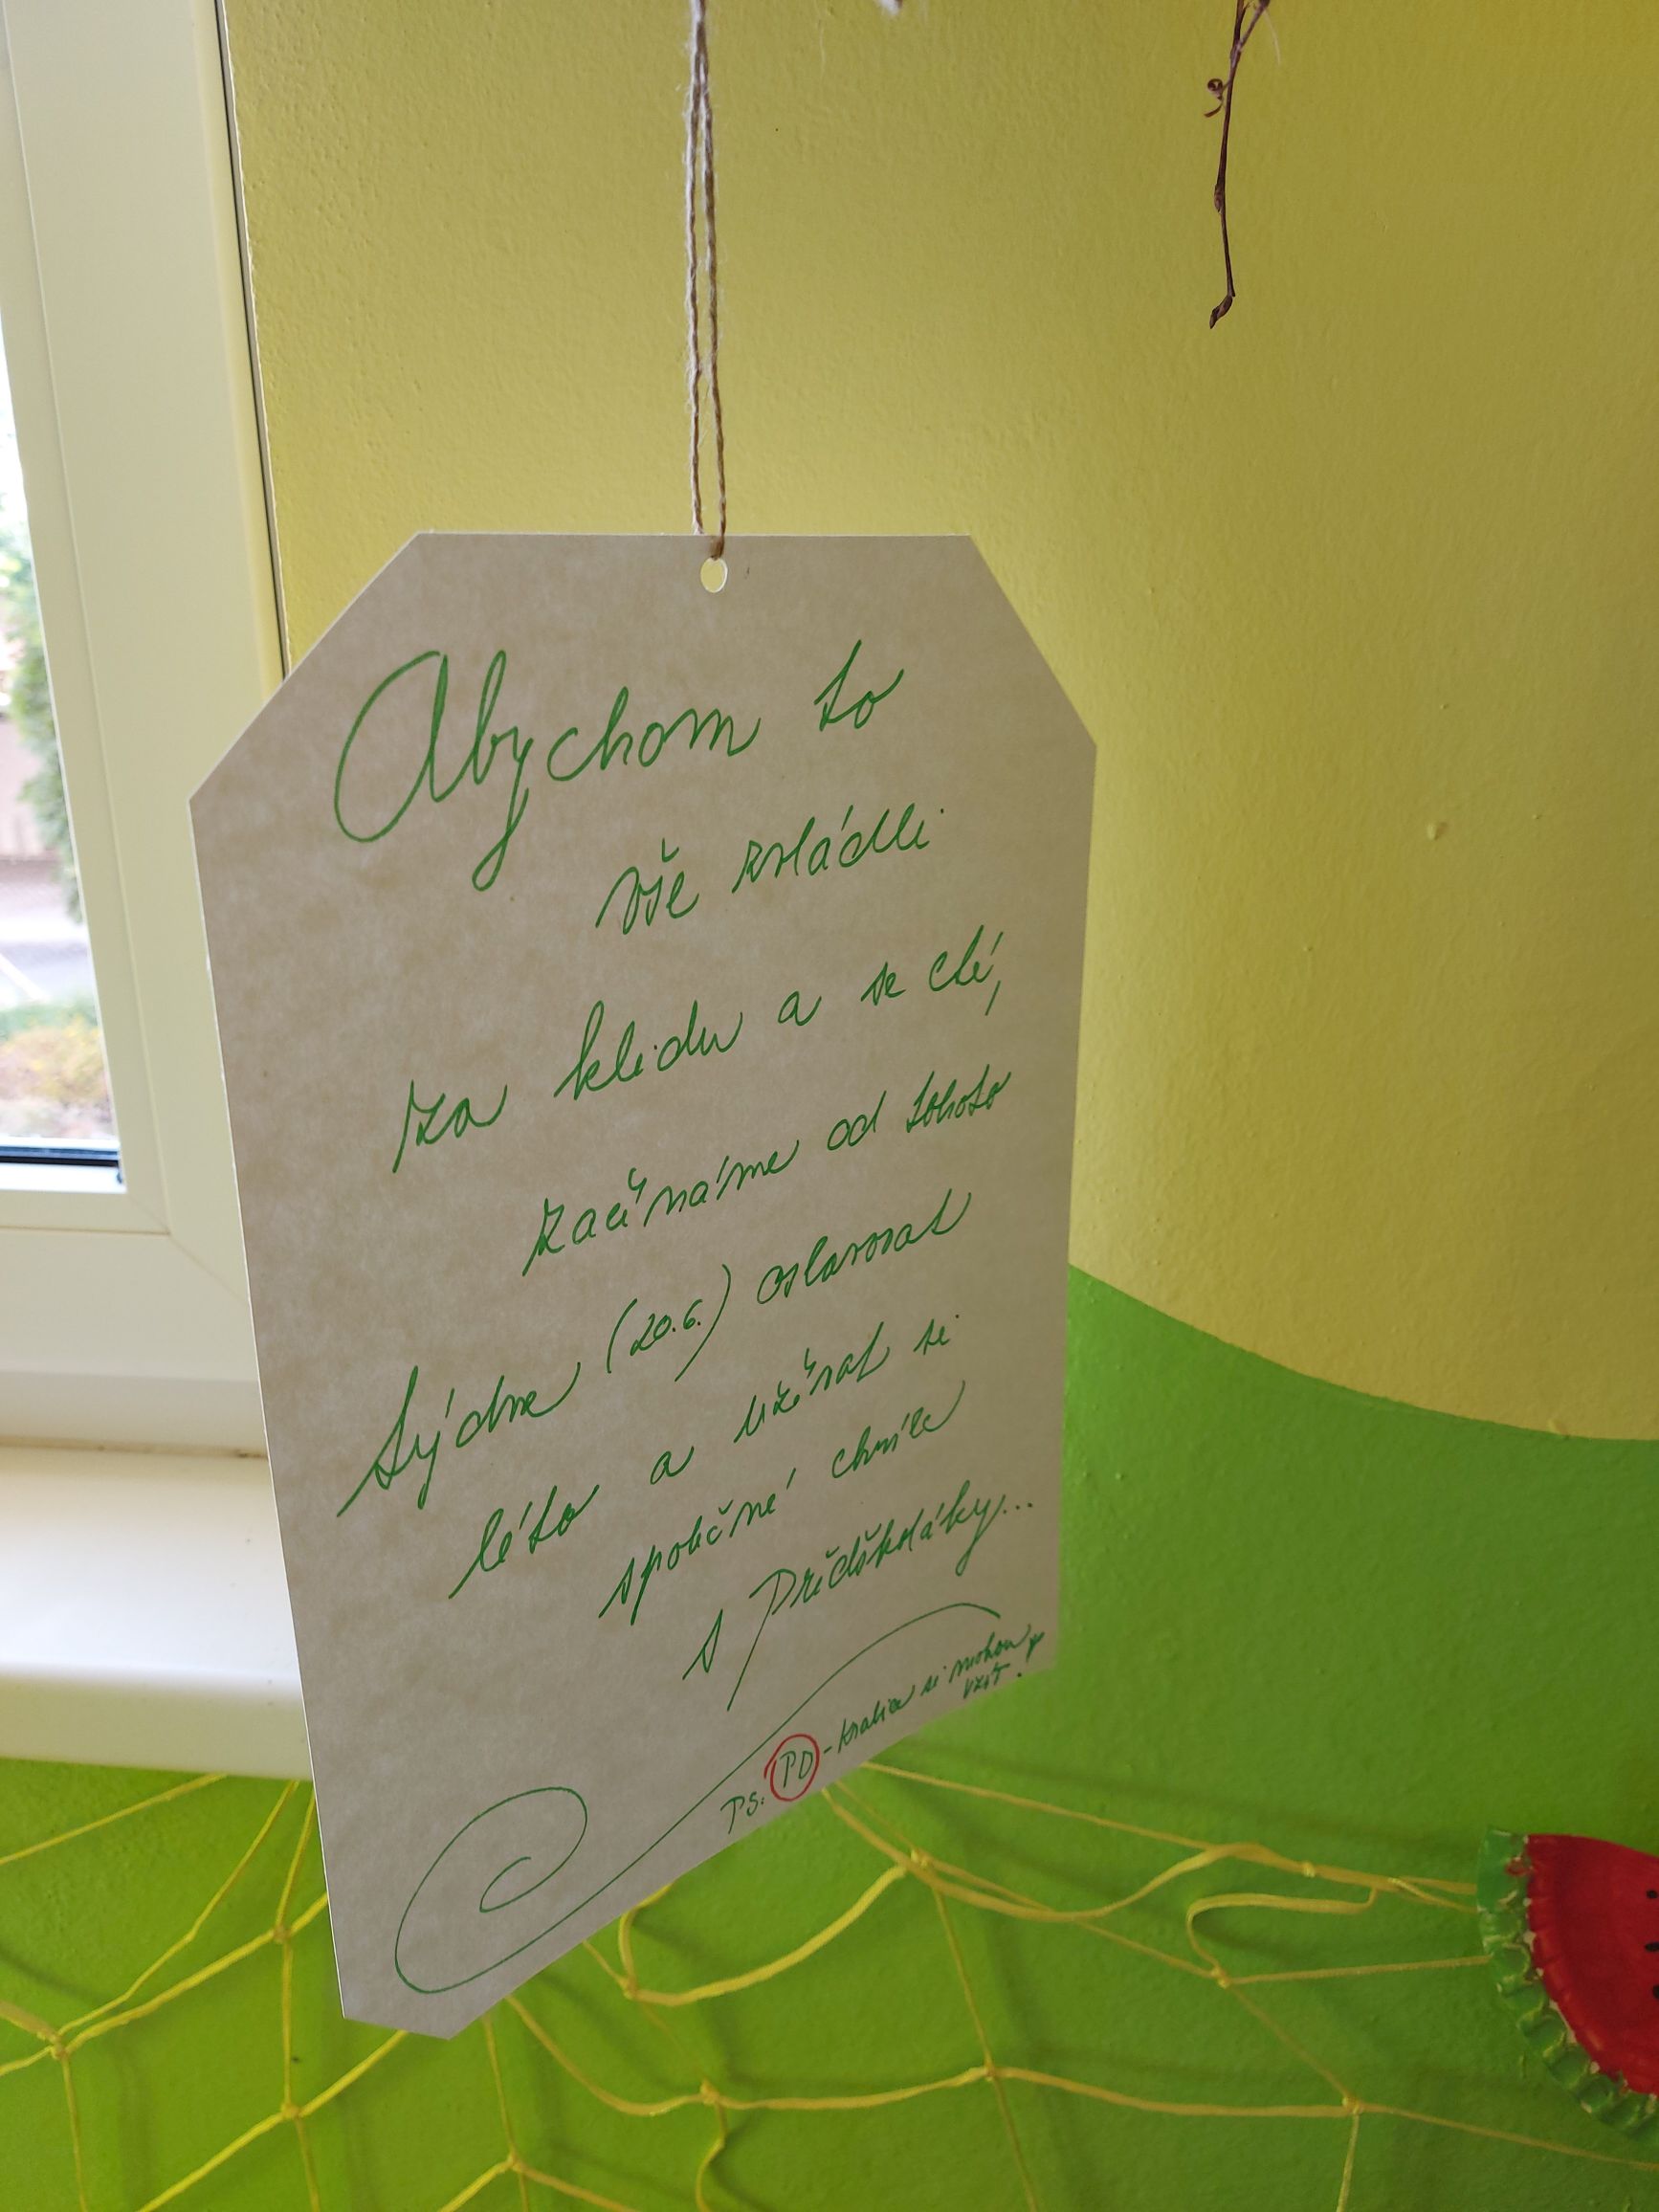 Abychom to
vše zvládli
za klidu a se ctí,
začínáme od tohoto
týdne (20.6.) oslavovat
léto a užívat si
společné chvíle
s Předškoláky...
PS: PD - kraťasi si mohou
vzít!